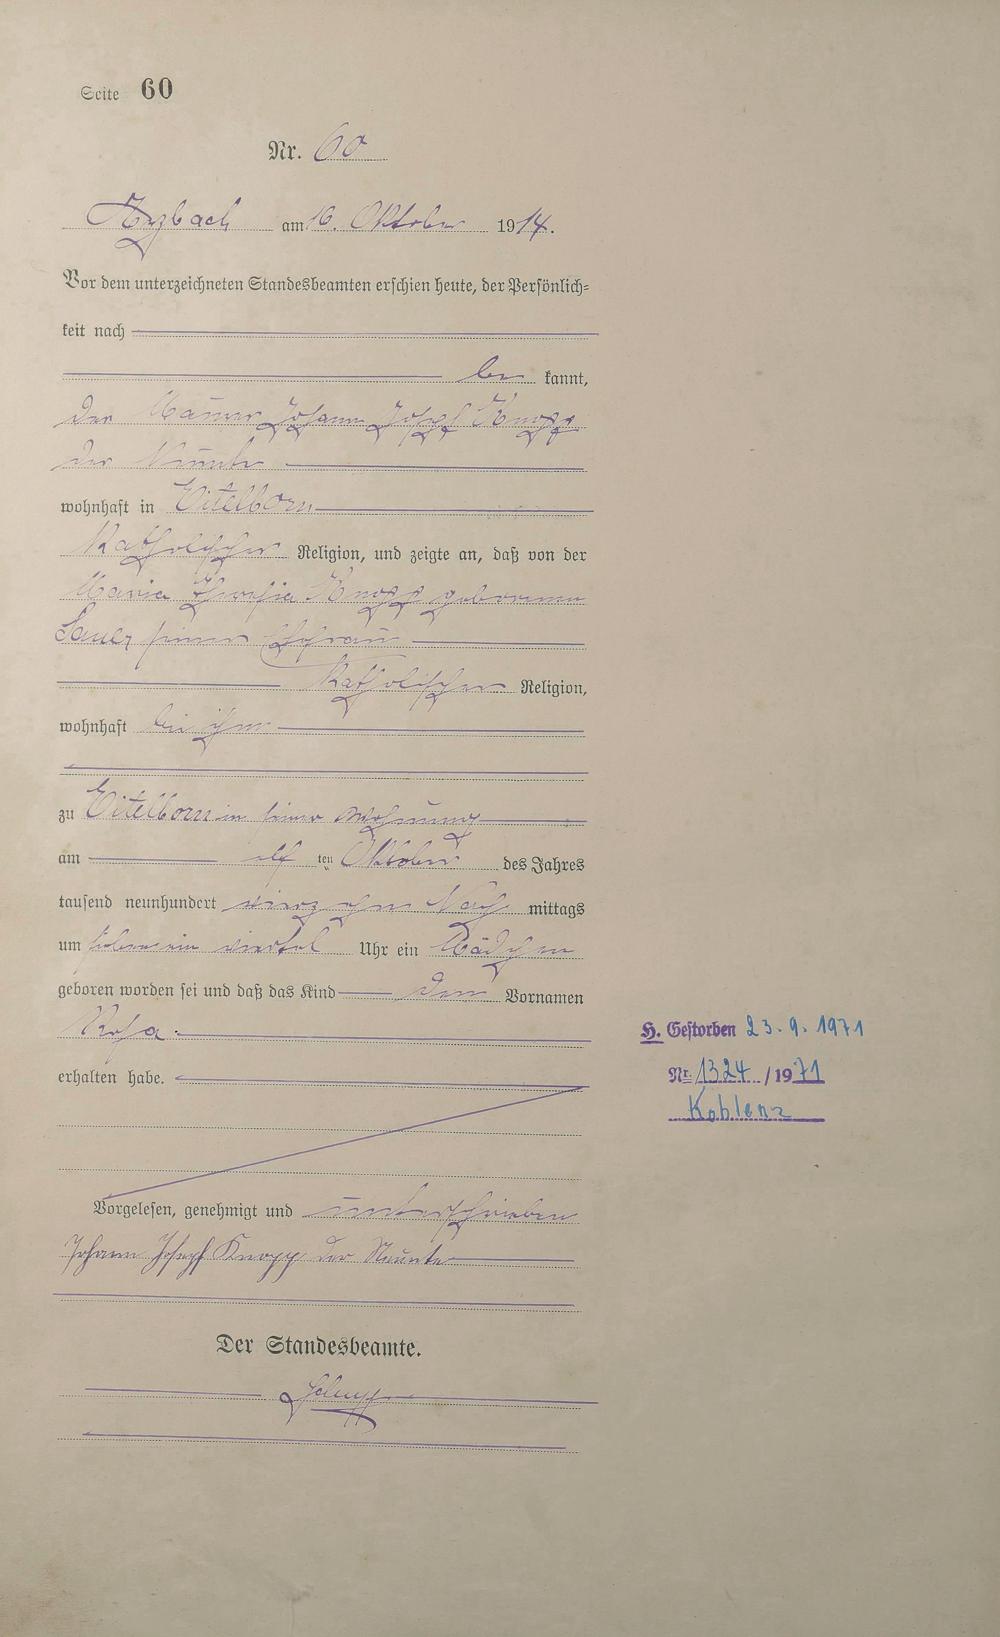 Seite 60
Nr. 60
Arzbach am 16. Oktober 1914.
Vor dem unterzeichneten Standesbeamten erschien heute, der Persönlich-
keit nach
be kannt,
der Maurer Johann Josef Knopp
der Neunte
wohnhaft in Eitelborn
Katholischer Religion, und zeigte an, daß von der
Maria Theresia Knopp geborenen
Sauer seiner Ehefrau
Katholischer Religion,
wohnhaft bei ihm
zu Eitelborn in seiner Wohnung
am elf ten Oktober des Jahres
tausend neunhundert vierzehn Nach mittags
um sieben ein viertel Uhr ein Mädchen
geboren worden sei und daß das Kind den Vornamen
Rosa
erhalten habe.
Vorgelesen, genehmigt und unterschrieben
Johann Joseph Knopp der Neunte
Der Standesbeamte.
H. Gestorben 23.9.1971
Nr. 1324 / 1971
Koblenz